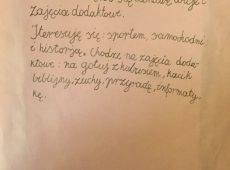 zajęcia dodatkowe.
Interesuję się: sportem, samochodami
i historją. Chodzę na zajęcia doda-
tkowe: na gotuj z kubusiem, kącik
biblijny, zuchy, przyrodę, informaty-
kę.